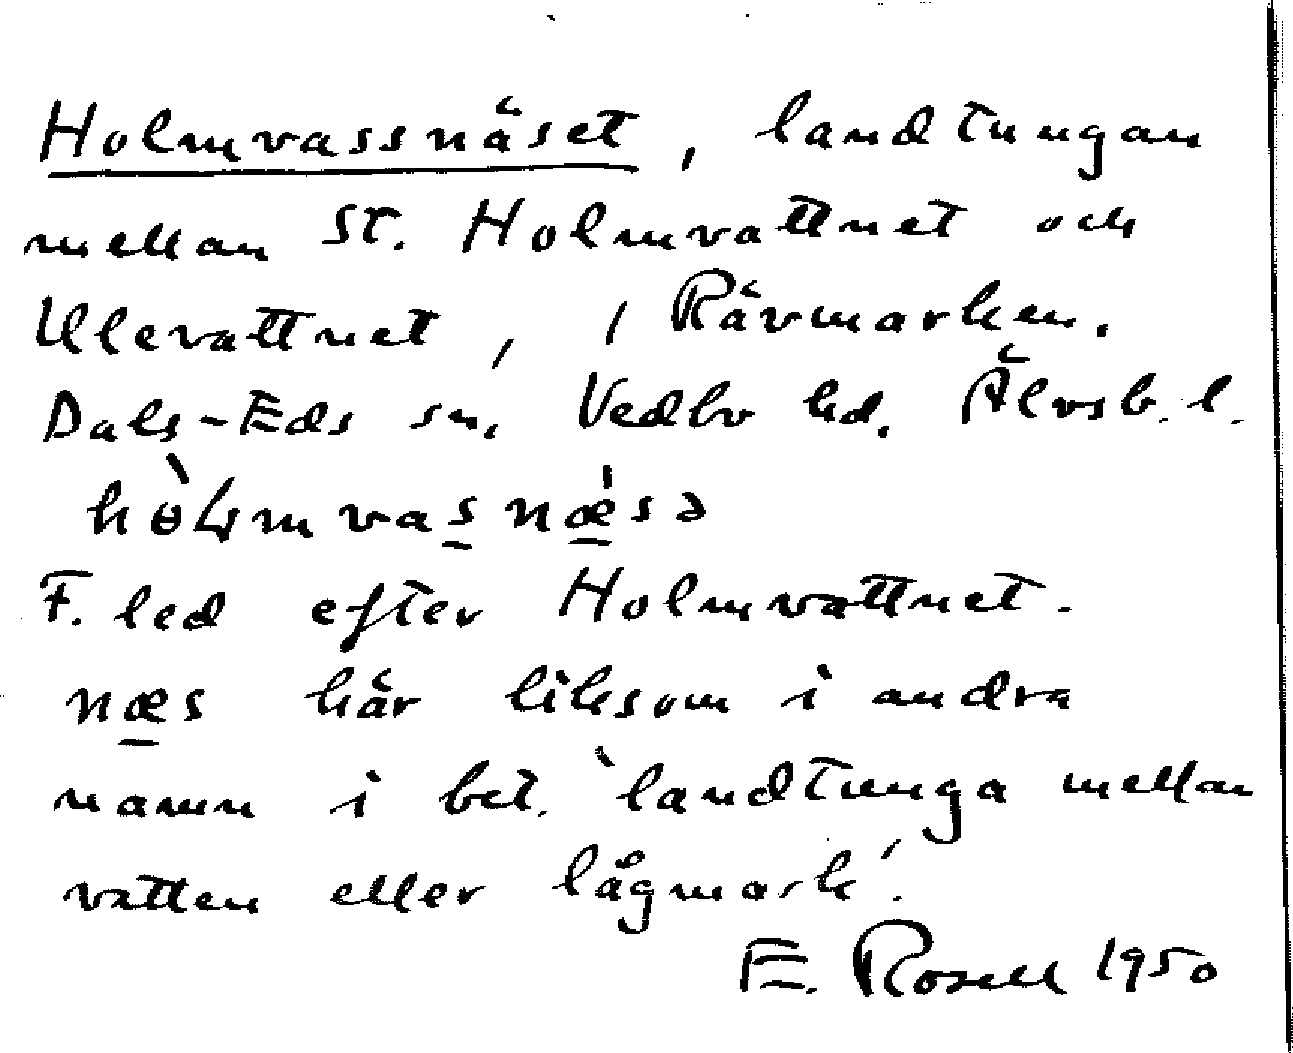 Holmvassnäset, landtungan
mellan St. Holmvattnet och
Ulevattnet, i Rävmarken.
Dals-Eds sn, Vedbo hd. Älvsb. l.
hòLmvasnæ̀sə
F. led efter Holmvattnet.
næs här liksom i andra
namn i bet. 'landtunga mellan
vatten eller lågmark'.
E. Rosell 1950